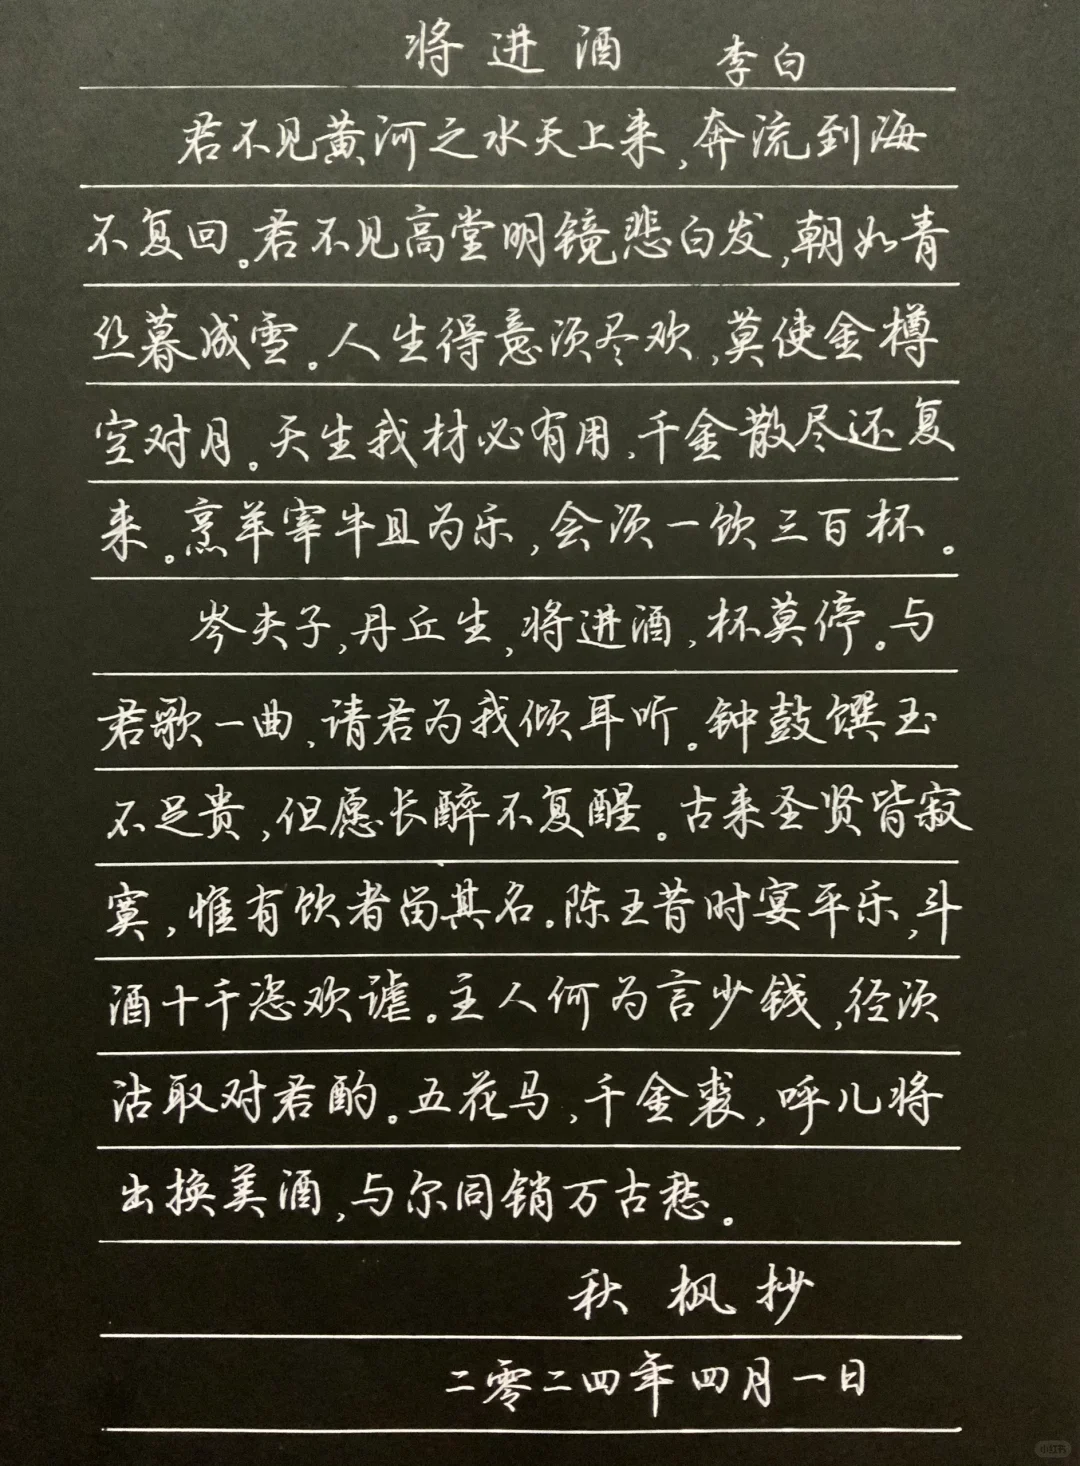 将进酒 李白
君不见黄河之水天上来,奔流到海
不复回。君不见高堂明镜悲白发,朝如青
丝暮成雪。人生得意须尽欢,莫使金樽
空对月。天生我材必有用,千金散尽还复
来。烹羊宰牛且为乐,会须一饮三百杯。
岑夫子,丹丘生,将进酒,杯莫停。与
君歌一曲,请君为我倾耳听。钟鼓馔玉
不足贵,但愿长醉不复醒。古来圣贤皆寂
寞,惟有饮者留其名。陈王昔时宴平乐,斗
酒十千恣欢谑。主人何为言少钱,径须
沽取对君酌。五花马,千金裘,呼儿将
出换美酒,与尔同销万古愁。
秋枫抄
二零二四年四月一日
小红书